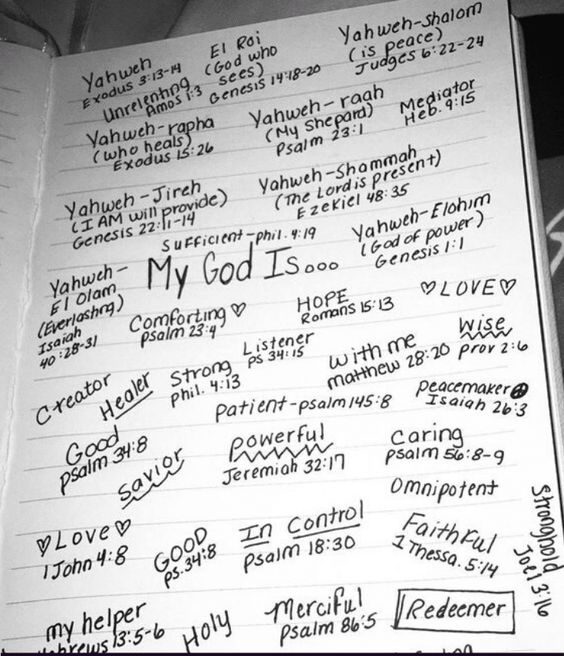 Yahweh
Exodus 3:13-14
El Roi
(God who
sees)
Genesis 14:18-20
Yahweh-Shalom
(is peace)
Judges 6:22-24
Unrelenting
Amos 1:3
Yahweh-rapha
(who heals)
Exodus 15:26
Yahweh-raah
(My Shepard)
Psalm 23:1
Mediator
Heb. 9:15
Yahweh-Jireh
(I AM will provide)
Genesis 22:11-14
Yahweh-Shammah
(The Lord is present)
Ezekiel 48:35
Sufficient-phil. 4:19
My God Is...
Yahweh-Elohim
(God of power)
Genesis 1:1
Yahweh-
El Olam
(Everlashng)
Isaiah
40:28-31
Comforting ♡
psalm 23:4
HOPE
Romans 15:13
♡LOVE♡
Creator
Healer
Strong
phil. 4:13
Listener
ps 34:15
with me
matthew 28:20
wise
prov 2:6
Good
psalm 34:8
patient-psalm 145:8
peacemaker☮
Isaiah 26:3
Savior
powerful
Jeremiah 32:17
Caring
psalm 56:8-9
Omnipotent
Stronghold
Joel 3:16
♡Love♡
1 John 4:8
GOOD
ps. 34:8
In Control
psalm 18:30
Faithful
1 Thessa. 5:14
my helper
13:5-6
Holy
Merciful
Psalm 86:5
Redeemer